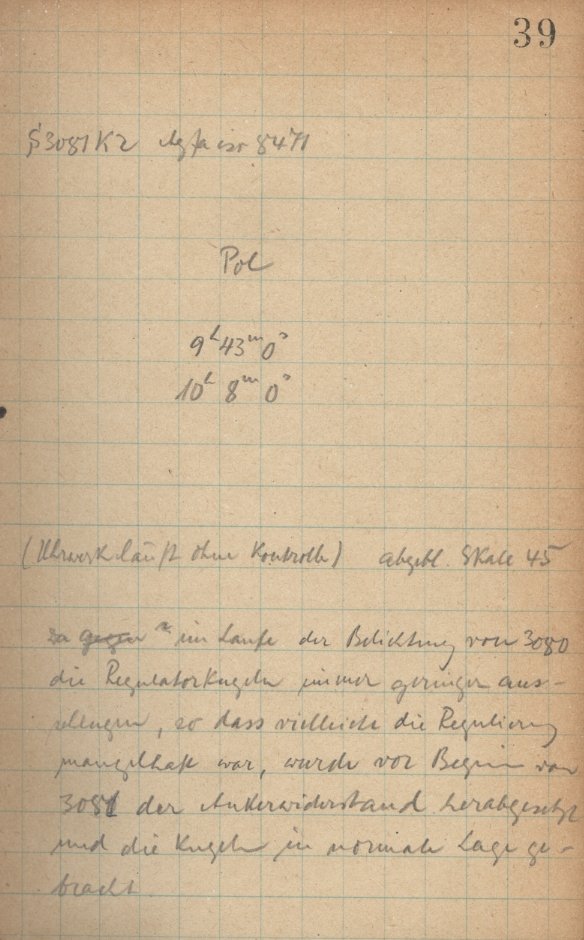 39
§3081 K2 Agfa iso 8471
Pol
9h 43m 0s
10h 8m 0s
(Uhrwerk läuft ohne Kontrolle) abgebl. Skale 45
Da gegen im Laufe der Belichtung von 3080
die Regulatorkugeln immer geringer aus-
schlugen, so dass vielleicht die Regulierung
mangelhaft war, wurde vor Beginn von
3081 der Ankerwiderstand herabgesetzt
und die Kugeln in normale Lage ge-
bracht